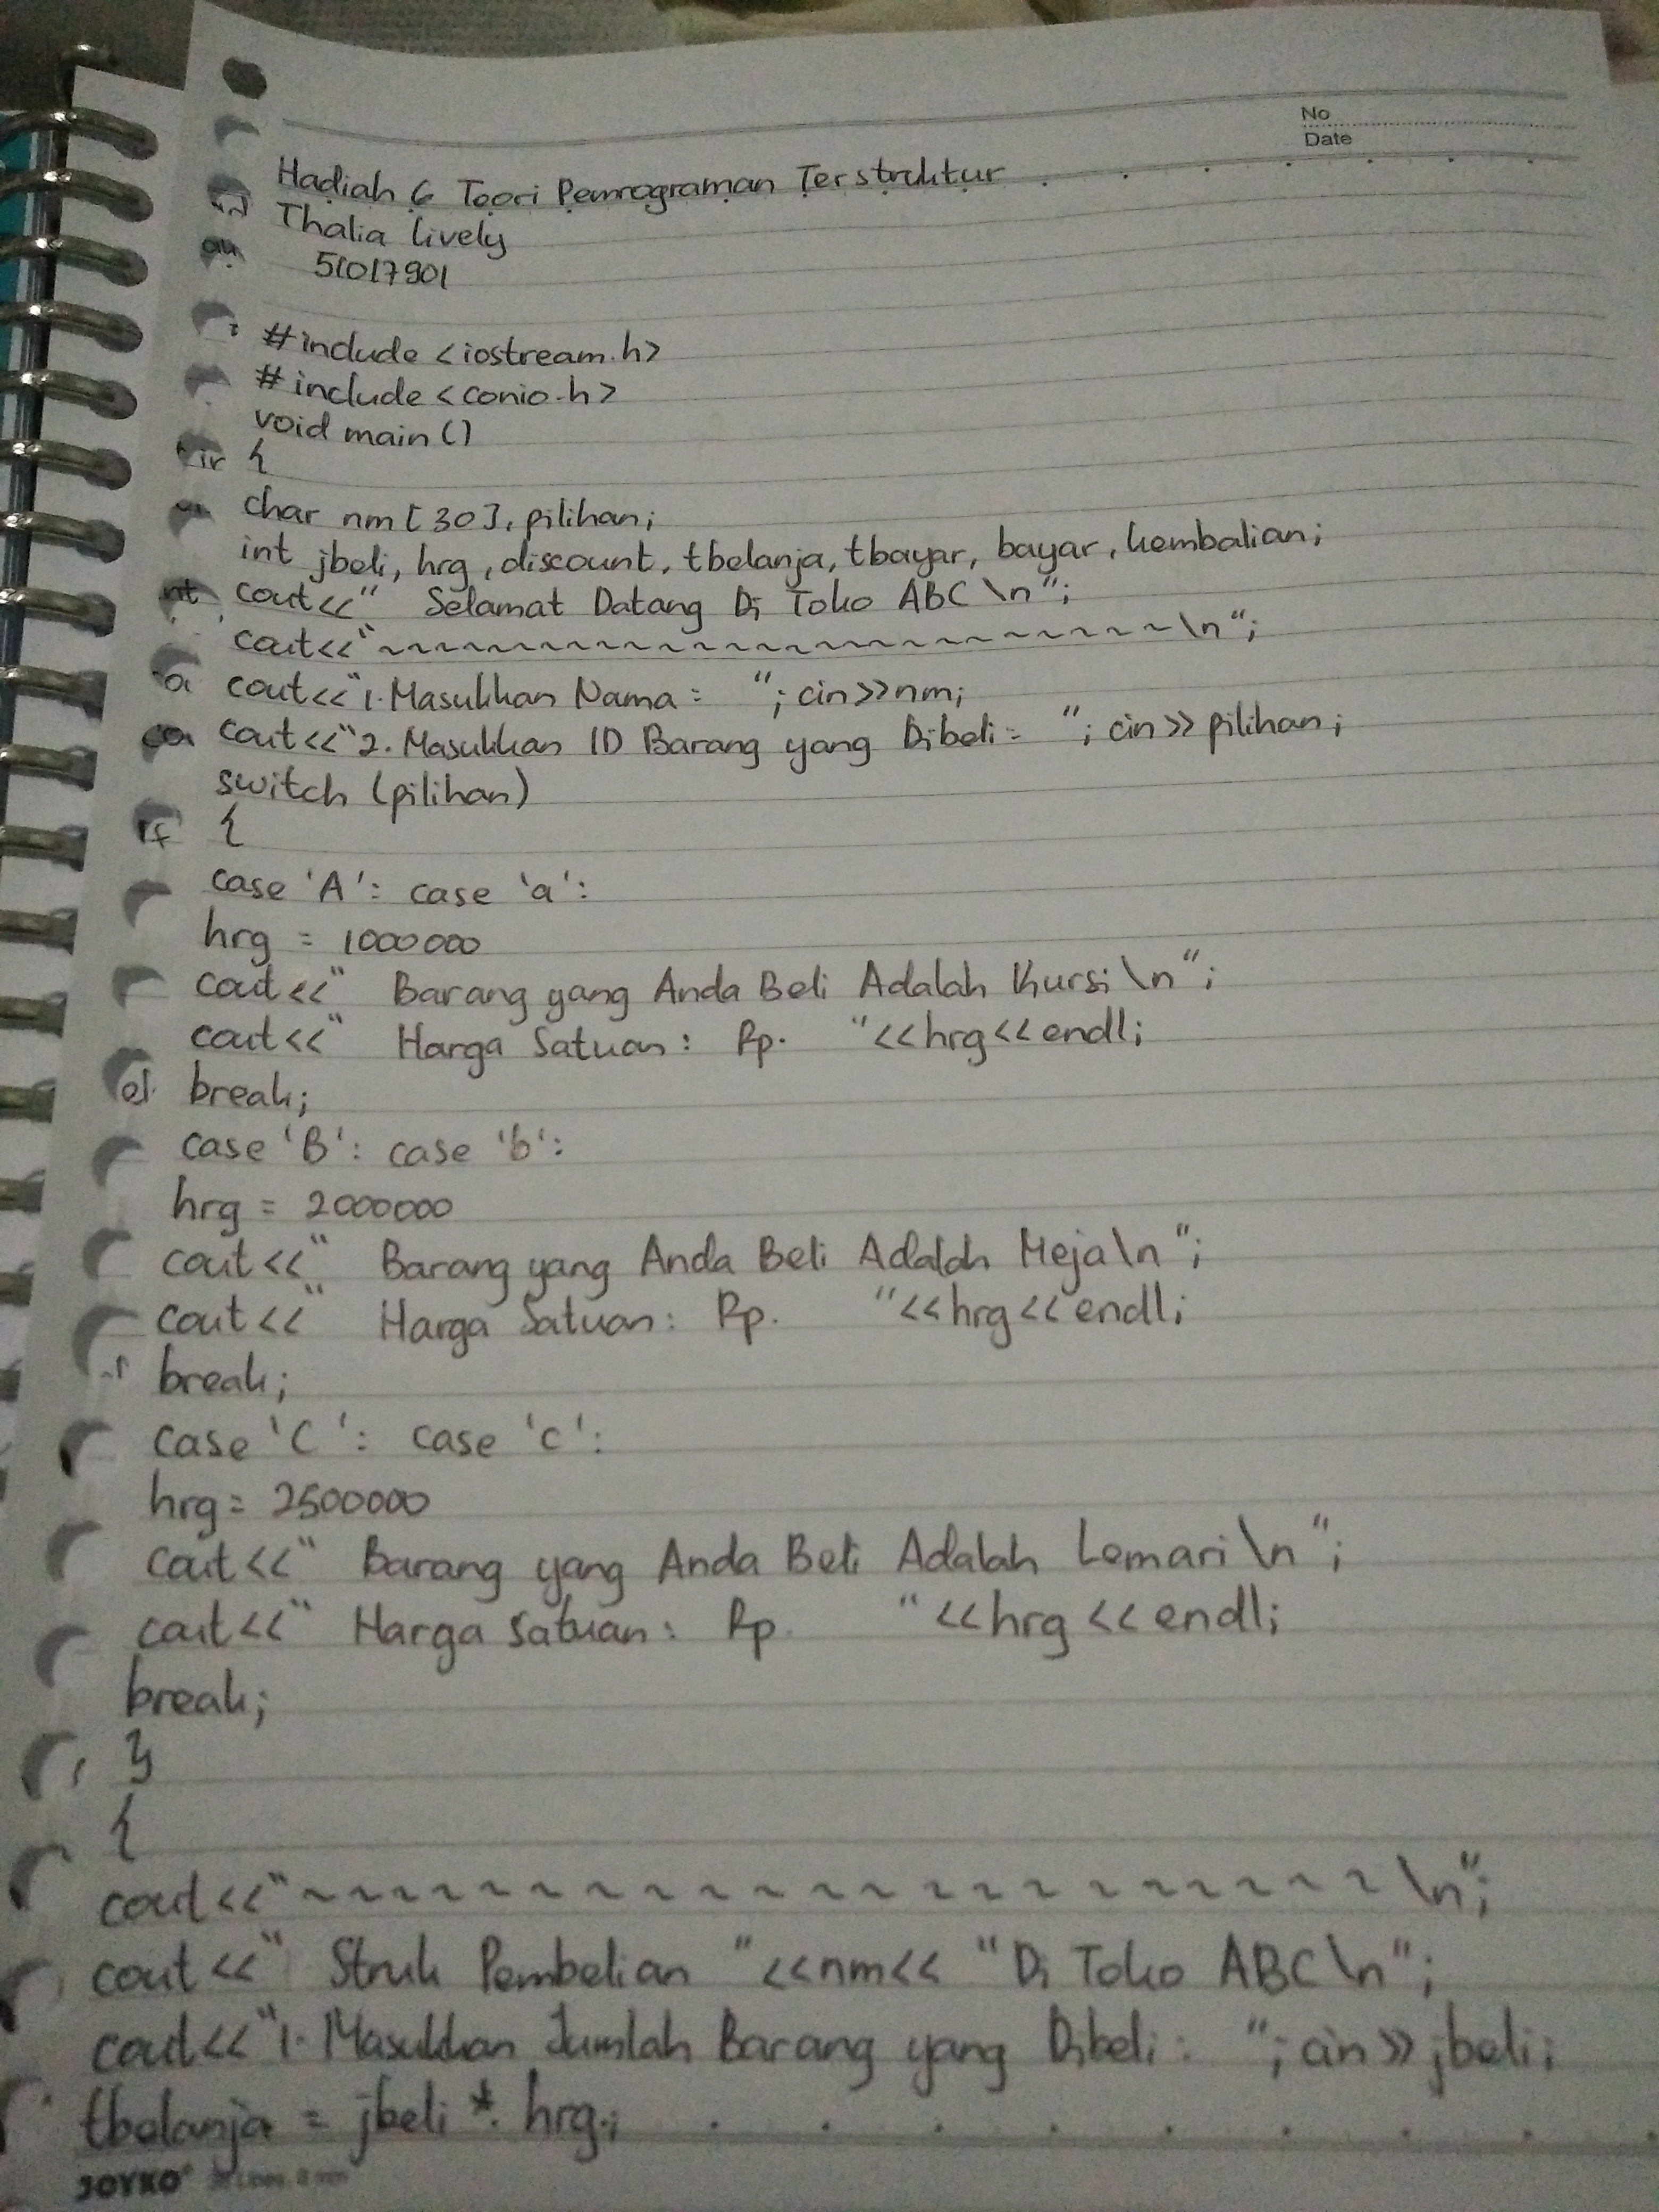 No
Date
Hadiah 6 Teori Pemrograman Terstruktur
Thalia Lively
51017901
#include <iostream.h>
#include <conio.h>
void main()
{
char nm[30], pilihan;
int jbeli, hrg, discount, tbelanja, tbayar, bayar, kembalian;
cout<<" Selamat Datang Di Toko ABC \n";
cout<<"~~~~~~~~~~~~~~~~~~~~~~~~\n";
cout<<"1. Masukkan Nama = "; cin>>nm;
cout<<"2. Masukkan ID Barang yang Dibeli = "; cin>>pilihan;
switch (pilihan)
{
case 'A': case 'a':
hrg = 1000000
cout<<" Barang yang Anda Beli Adalah Kursi \n";
cout<<" Harga Satuan : Rp. "<<hrg<<endl;
break;
case 'B': case 'b':
hrg = 2000000
cout<<" Barang yang Anda Beli Adalah Meja\n";
cout<<" Harga Satuan : Rp. "<<hrg<<endl;
break;
case 'C': case 'c':
hrg = 2500000
cout<<" Barang yang Anda Beli Adalah Lemari \n";
cout<<" Harga Satuan : Rp. "<<hrg<<endl;
break;
}
{
cout<<"~~~~~~~~~~~~~~~~~~~~\n";
cout<<" Struk Pembelian "<<nm<< "Di Toko ABC \n";
cout<<"1. Masukkan Jumlah Barang yang Dibeli : "; cin>>jbeli;
tbelanja = jbeli * hrg;
JOYKO